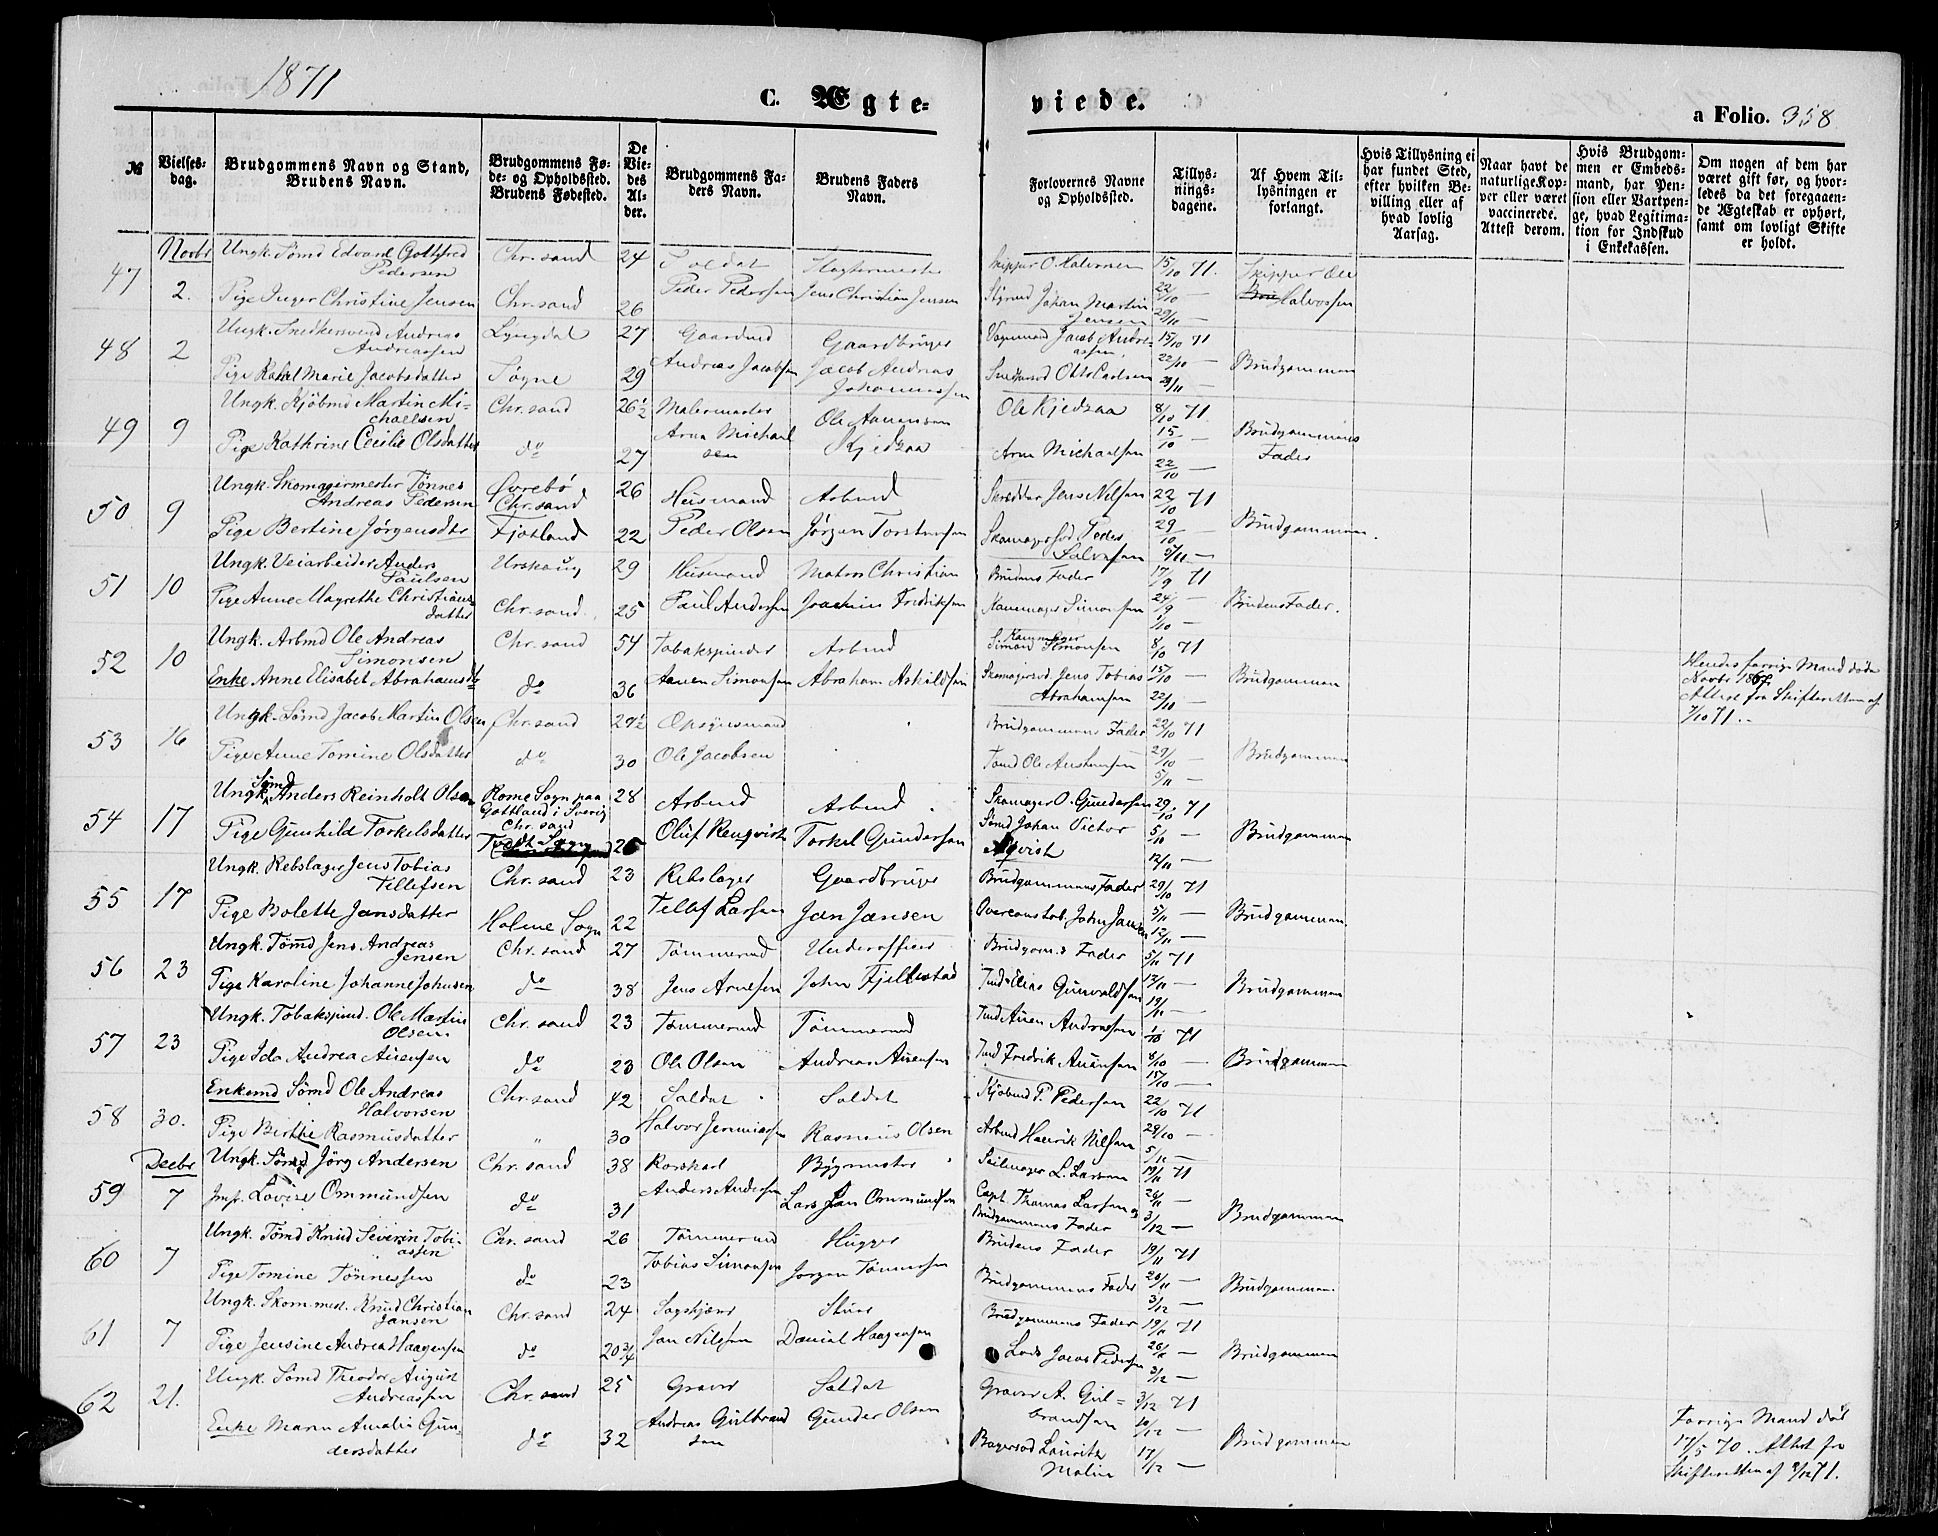 1871
C. Ægte-
viede.
a Folio. 358
№
Vielses-
dag.
Brudgommens Navn og Stand,
Brudens Navn.
Brudgommens Fø-
de- og Opholdsted.
Brudens Fødested.
De
Vie-
des
Al-
der.
Brudgommens Fa-
ders Navn.
Brudens Faders
Navn.
Forlovernes Navne
og Opholdsted.
Tillys-
nings-
dagene.
Af Hvem Til-
lysningen er
forlangt.
Hvis Tillysning ei
har fundet Sted,
efter hvilken Be-
villing eller af
hvad lovlig
Aarsag.
Naar havt de
naturlige Kop-
per eller været
vaccinerede.
Attest derom.
Hvis Brudgom-
men er Embeds-
mand, har Pen-
sion eller Vartpen-
ge, hvad Legitima-
tion for Indskud
i Enkekassen.
Om nogen af dem har
været gift før, og hvor-
ledes da det foregaaen-
de Ægteskab er ophørt,
samt om lovligt Skifte
er holdt.
47 Novbr 2.
Ungk. Sømd Edvard Gottfred
Pedersen
Chr.sand 24 Soldat
Peder Pedersen
Pige Inger Christine Jensen Chr.sand 26
Jens Christian Jensen
Skipper O. Halvorsen 15/10 71. Skipper Ole
Halvorsen
Styrmd Johan Martin
Jensen
22/10 —
29/10 —
48 2
Ungk. Snedkersvend Andreas
Andreassen
Lyngdal 27 Gaardmd
Andreas Jacobsen
Gaardbruger
Jacob Andreas
Johannessen
Pige Rakel Marie Jacobsdatter Søgne 29
Vognmand Jacob Andre-
assen. 15/10 71
22/10 — Brudgommen
Snedkersvd Otto Carlsen 29/10 —
49 9
Ungk. Kjøbmd Martin Mi-
chaelsen
Chr.sand 26½ Malermester
Arne Michael
sen
Ole Aanensen
Kjedsaa
Pige Kathrine Cecilie Olsdatter do 27
Ole Kjedsaa 8/10 71
15/10 — Brudgommens
Fader
Arne Michaelsen 22/10 —
50 9
Ungk. Skomagermester Tønnes
Andreas Pedersen
Øvrebø
Chr.sand
26 Husmand
Peder Olsen
Arbmd
Jørgen Torstensen
Pige Bertine Jørgensdtr Fjotland 22
Skrædder Jens Nilsen 22/10 71
29/10 — Brudgommen.
Skomagersvd Peder
Salvesen 5/11 —
51 10
Ungk. Veiarbeider Anders
Paulsen
Urskoug 29 Husmand
Paul Andersen
Matros Christian
Joachim Fredriksen
Pige Anne Magrethe Christians
datter
Chr.sand. 25
Brudens Fader 17/9 71
24/9 — Brudens Fader.
Simonsen 1/10 —
52 10
Ungk. Arbmd Ole Andreas
Simonsen
Chr.sand 54 Tobakspinder
Aanen Simonsen
Arbmd
Abraham Askildsen
Enke Anne Elisabet Abrahamsdtr do 36
Simon Simonsen 8/10 71
15/10 — Brudgommen
Skomagersvd. Jens Tobias
Abrahamsen 22/10 —
Hendes forrige Mand døde
Novbr 1867.
Attest fra Skifteretten af
7/10 71. —
53 16
Ungk. Sømd Jacob Martin Olsen Chr.sand 29½ Opsynsmand
Ole Jacobsen
Pige Anne Tomine Olsdatter do 30
Brudgommens Fader 22/10 71
29/10 — Brudgommen
Tømd Ole Austensen 5/11 —
54 17
Ungk. Sømd Anders Reinholt Olsen
Rome Sogn paa
Gottland i Sverig
Chr.sand
28 Arbmd
Oluf Renqvist
Arbmd
Torkel Gundersen
Pige Gunhild Torkelsdatter Tvedt Sogn 25
Skomager O. Gundersen 29/10 71
Sømd Johan Victor
5/11 — Brudgommen
12/11 —
55 17
Ungk. Rebslager Jens Tobias
Tellefsen
Chr.sand 23 Rebslager
Tellef Larsen
Gaardbruger
Jan Jansen
Pige Bolette Jansdatter Halme Sogn 22
Brudgommens Fader 29/10 71
5/11 — Brudgommen
John Jansen 12/11 —
56 23
Ungk. Tømd Jens Andreas
Jensen
Chr.sand 27 Tømmermd
Jens Arnesen
Underofficer
John Fjeldestad
Pige Karoline Johanne Johnsen do 38
Brudgom.s Fader 5/11 71
12/11 — Brudgommen
Tmd Elias Gunvaldsen 19/11 —
57 23
Ungk. Tobakspind. Ole Martin
Olsen
Chr.sand 23 Tømmermd
Ole Olsen
Tømmermd
Andreas Auensen
Pige Ida Andrea Auensen do 23
Tmd Auen Andreassen 1/10 71
Tmd Fredrik Auensen 8/10 — Brudgommen
15/10 —
58 30.
Enkemd Sømd Ole Andreas
Halvorsen
Chr.sand 42 Soldat
Halvor Jenniassen
Soldat
Rasmus Olsen
Pige Berthe Rasmusdatter " 30
Kjøbmd P. Pedersen 22/10 71
Arbmd Henrik Nilsen 29/10 —
5/11 —
59 Decbr 7
Ungk. Sømd Jörg Andersen Chr.sand 38 Rorskarl
Anders Andersen
Bygmester
Lars Jan Ommundsen
Jmf. Lovise Ommundsen do 31
Seilmager L. Larsen 19/11 71
Capt. Thomas Larsen og
Brudgommens Fader
26/11 —
3/12 — Brudgommen
60 7
Ungk. Tømd Knud Severin Tobi-
assen
Chr.sand 26 Tømmermd
Tobias Simonsen
Hugger
Jørgen Tønnessen
Pige Tomine Tønnessen do 23
Brudens Fader 19/11 71
Brudgommens Fader 26/11 — Brudgommen.
3/12 —
61 7
Ungk. Skom.mest. Knud Christian
Jansen
Chr.sand 24
Jan Nilsen
Daniel Haagensen
Pige Jensine Andrea Haagensen do 20¾
Brudgommens Fader 19/11 71
Lods Jacob Pedersen 26/11 — Brudgommen
3/12 —
62 21.
Ungk. Sømd Theodor August
Andreassen
Chr.sand 25 Graver
Andreas Gulbrand
sen
Soldat
Gunder Olsen
Enke Maren Amalia Gun-
dersdatter
do 32
Graver A. Gul-
brandsen
3/12 71
10/12 —
Bagersvd Lauritz
Malin
17/12 — Brudgommen
Forrige Mand død
17/5 70. Attest fra
Skifteretten af 2/12 71.